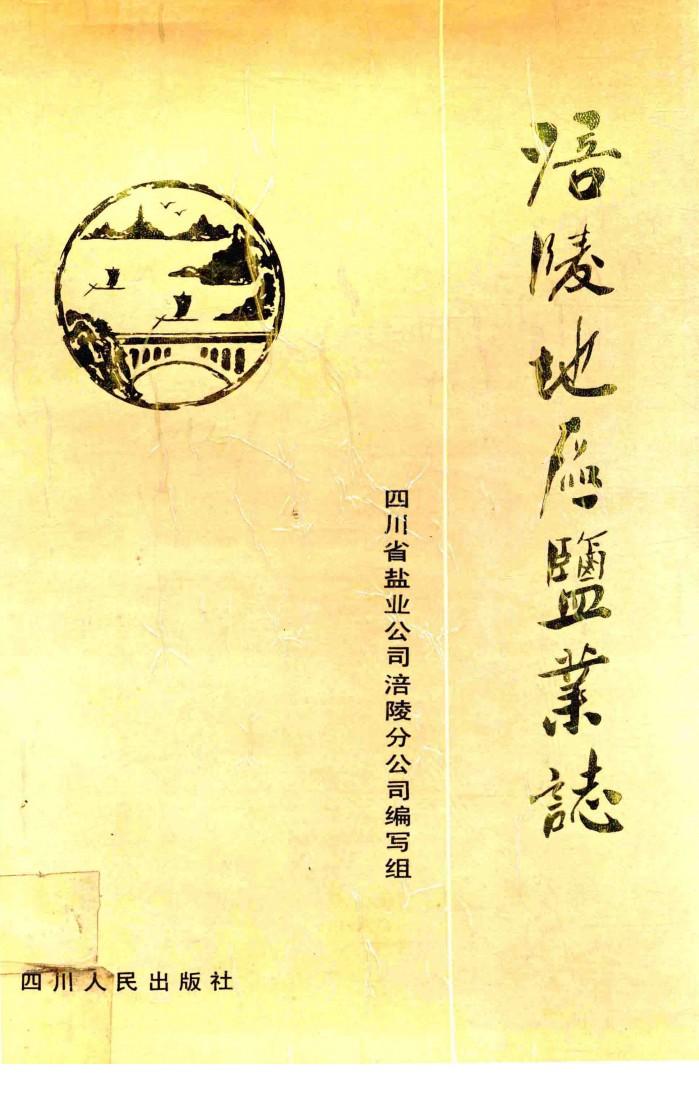 涪陵地區鹽業誌
四川省盐业公司涪陵分公司编写组
四川人民出版社